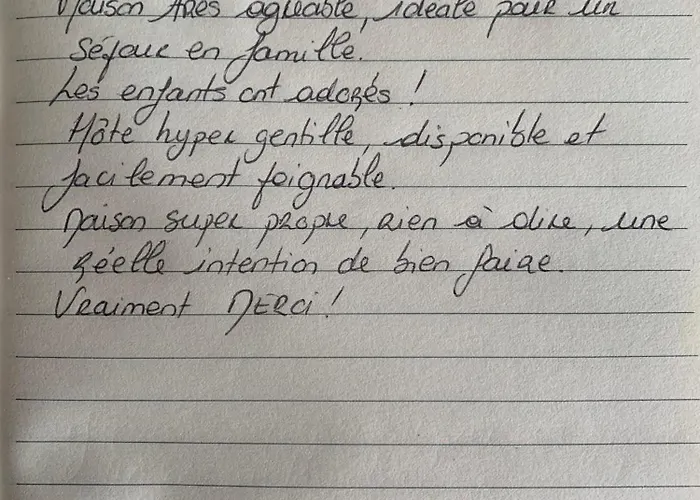 Maison très agréable, idéale pour un
séjour en famille.
Les enfants ont adorés !
Hôte hyper gentille, disponible et
facilement joignable.
Maison super propre, rien à dire, une
réelle intention de bien faire.
Vraiment MERCI !